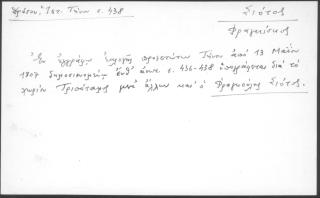 Δρόσου, Ἱστ. Τήνου σ. 438
Σιότος
Φραγκίσκος
Ἐν ἐγγράφῳ ἐκλογῆς προεστώτων Τήνου ἀπὸ 13 Μαΐου
1807 δημοσιευμένῳ ἔνθ' ἀνωτ. σ. 436-438 ὑπογράφεται διὰ τὸ
χωρίον Τριπόταμος μετ' ἄλλων καὶ ὁ Φραγκίσκος Σιότος.